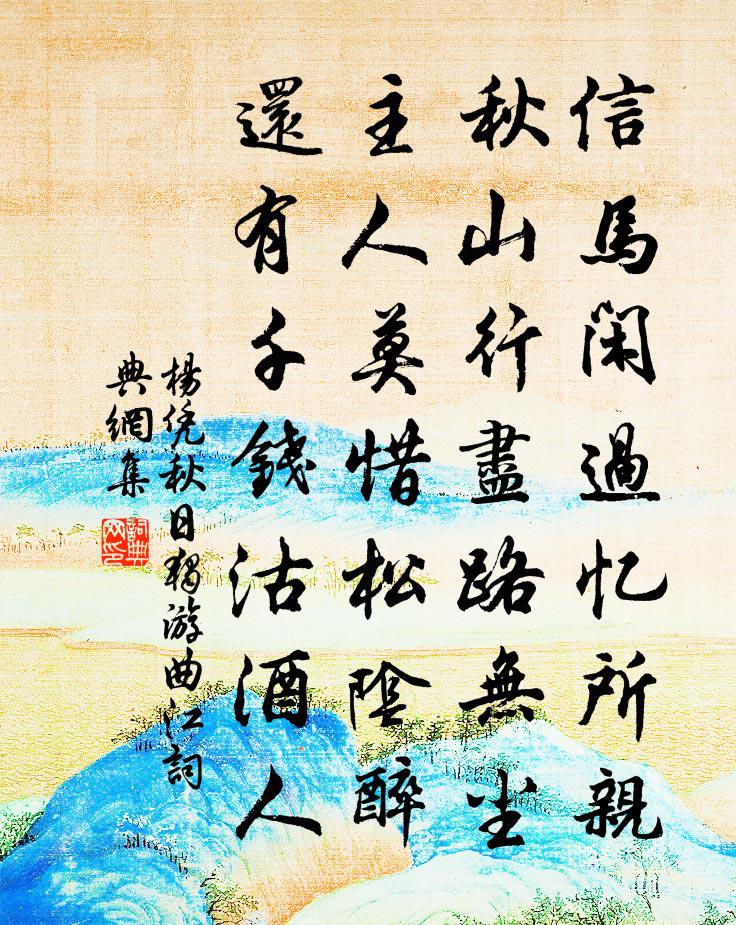 信馬閑過忆所親
秋山行盡路無尘
主人莫惜松陰醉
還有千錢沽酒人
楊凭秋日独游曲江詞
典網集
詞典
网印